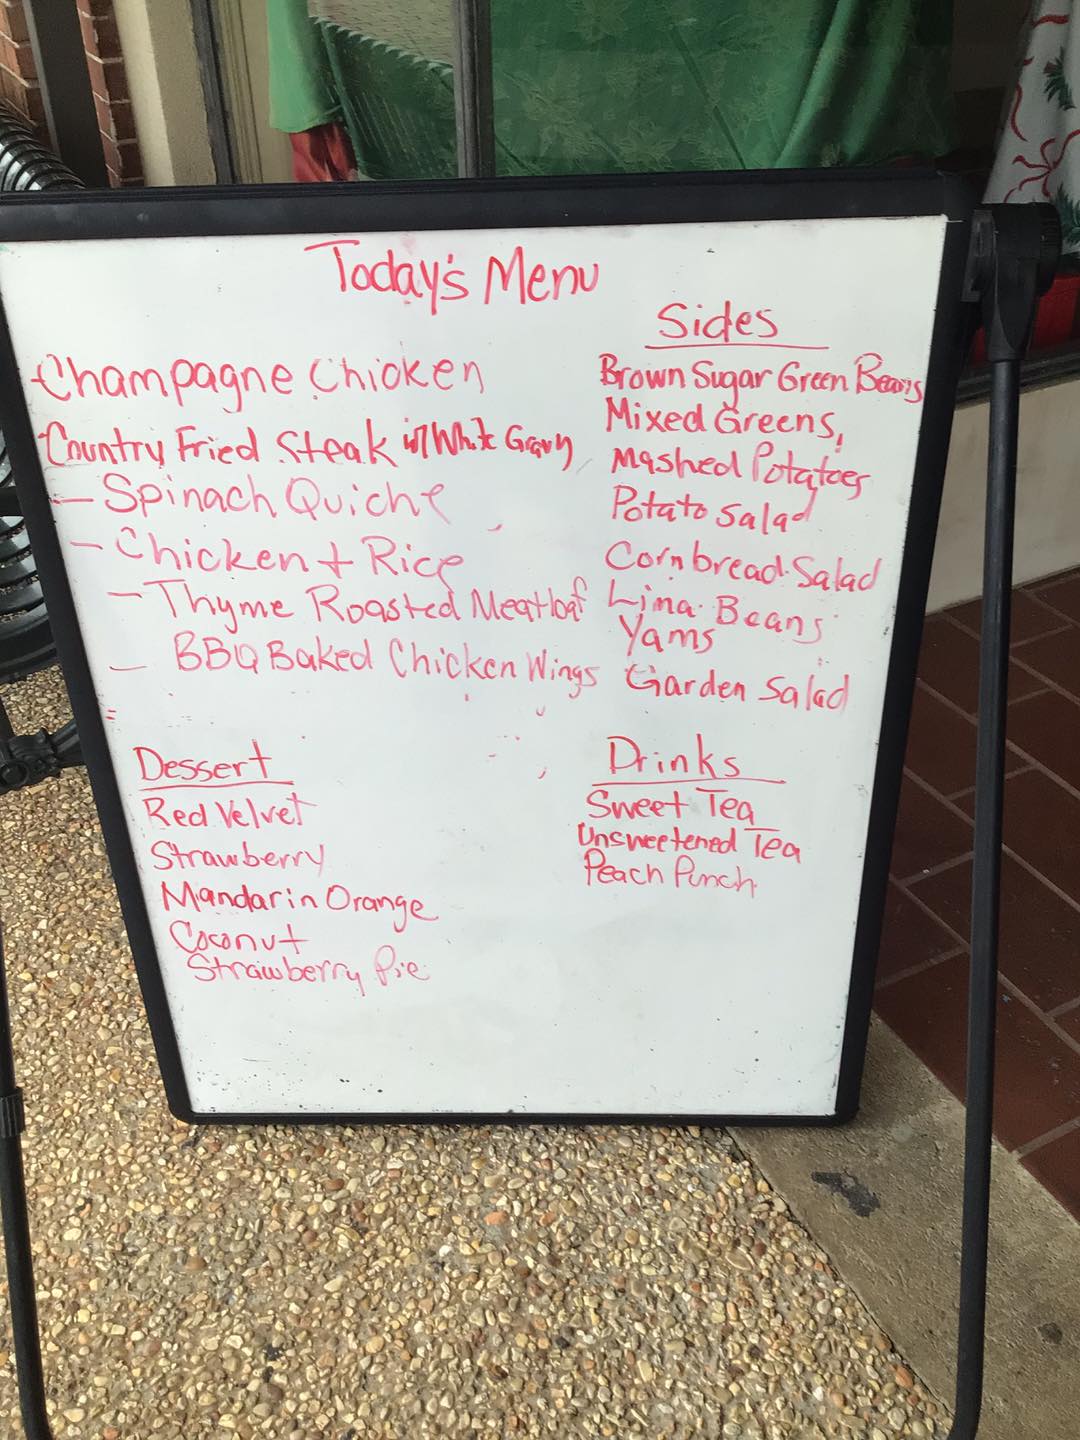 Today's Menu
Champagne Chicken
Country Fried Steak w/ White Gravy
- Spinach Quiche
- Chicken + Rice
- Thyme Roasted Meatloaf
- BBQ Baked Chicken Wings
Sides
Brown Sugar Green Beans
Mixed Greens,
Mashed Potatoes
Potato Salad
Cornbread Salad
Lima Beans
Yams
Garden Salad
Dessert
Red Velvet
Strawberry
Mandarin Orange
Coconut
Strawberry Pie
Drinks
Sweet Tea
Unsweetened Tea
Peach Punch